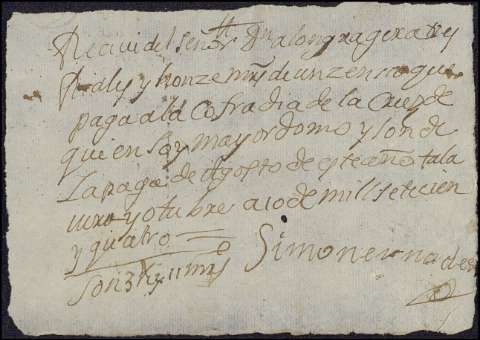 Recivi del señor Dn alonso na gera trey
Rales y honze mrs de un zenso que
paga a la Cofradia de la Cruz de
quien soy mayordomo y son de
la paga de Agosto de este año tala
y otubre a 10 de mill setecien
y quatro
Simon ernades
son 3 Rs y 11 mrs